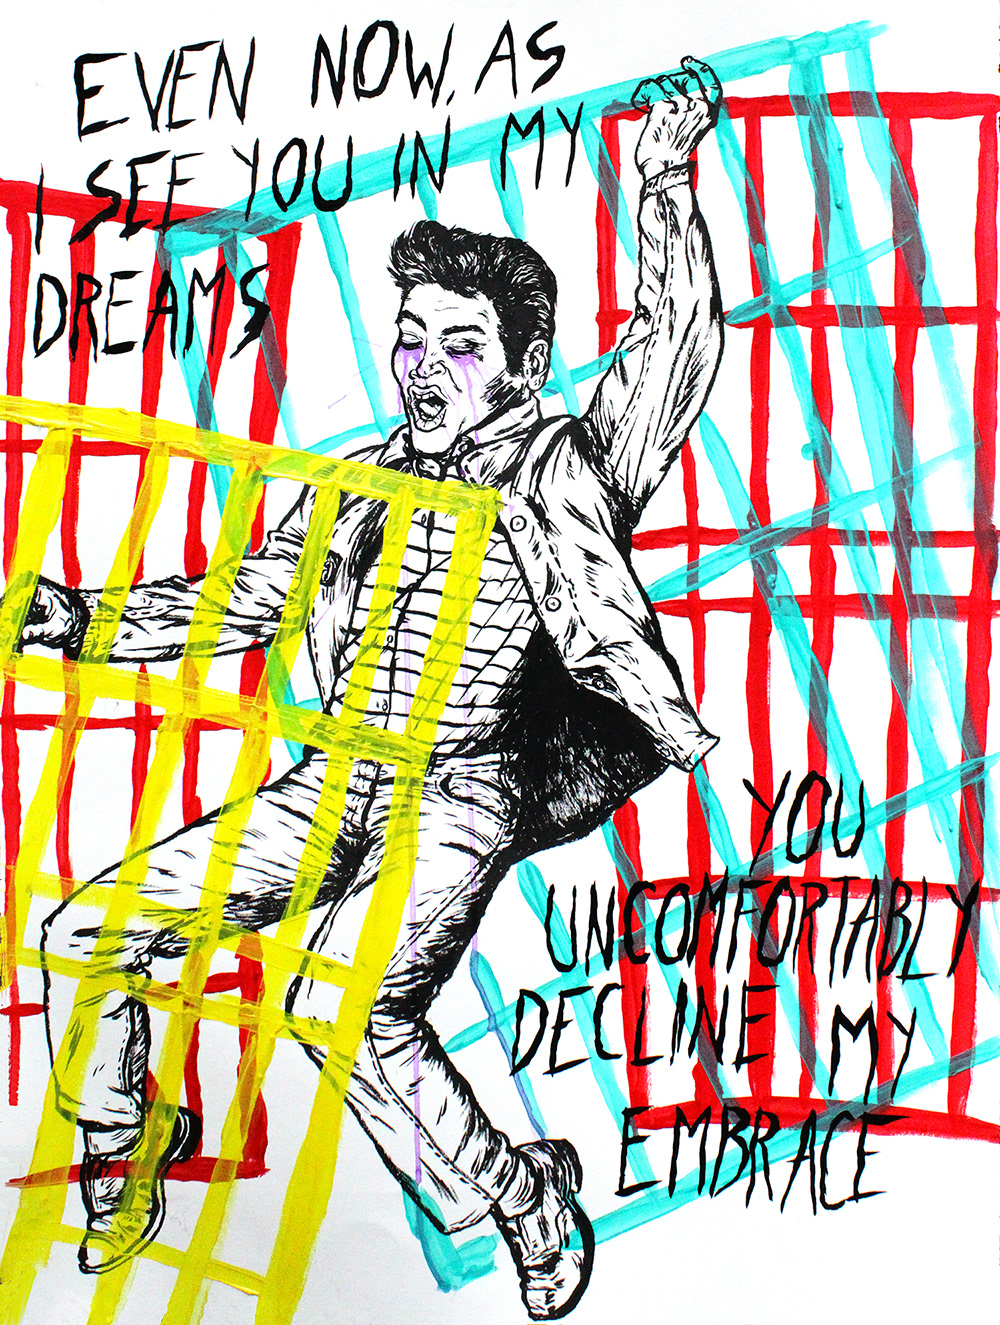 EVEN NOW, AS
I SEE YOU IN MY
DREAMS
YOU
UNCOMFORTABLY
DECLINE MY
EMBRACE